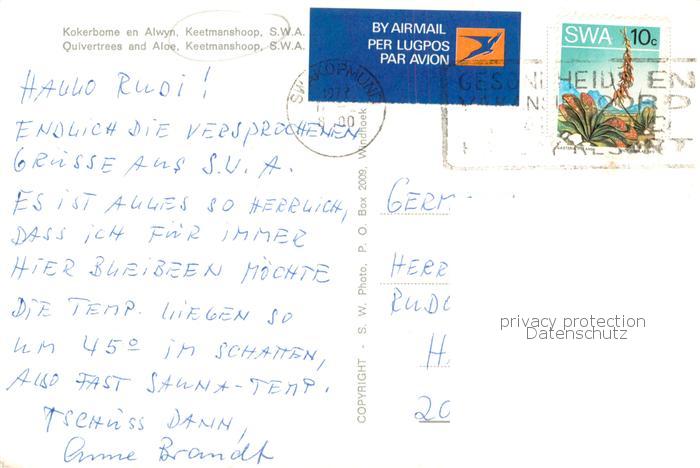 Kokerbome en Alwyn, Keetmanshoop, S.W.A.
Quivertrees and Aloe, Keetmanshoop, S.W.A.
BY AIRMAIL
PER LUGPOS
PAR AVION
SWA 10c
SWAKOPMUND
HALLO RUDI!
ENDLICH DIE VERSPROCHENEN
GRÜSSE AUS S.W.A.
ES IST ALLES SO HERRLICH,
DASS ICH FÜR IMMER
HIER BLEIBEEN MÖCHTE
DIE TEMP. LIEGEN SO
UM 45° IM SCHATTEN,
ALSO FAST SAUNA-TEMP.
TSCHÜSS DANN,
Anne Brandt
COPYRIGHT - S. W. Photo, P. O. Box 2009, Windhoek
GERM
HERR
RUDO
H.
20
privacy protection
Datenschutz